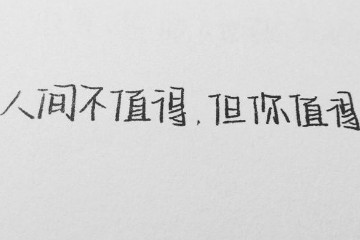 人间不值得,但你值得